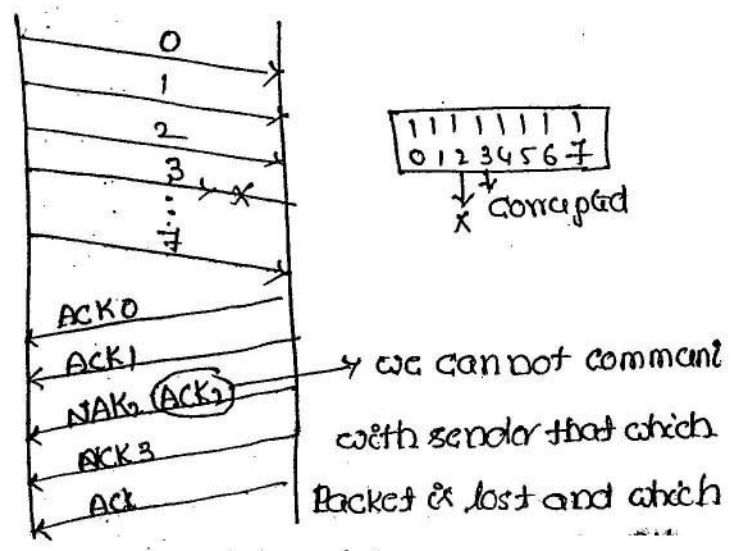 0
1
2
3
7
1 1 1 1 1 1 1 1
0 1 2 3 4 5 6 7
x corrupted
x
ACK 0
ACK 1
NAK2 (ACK2) we cannot communi
with sender that which
ACK 3
Ack
Packet is lost and which